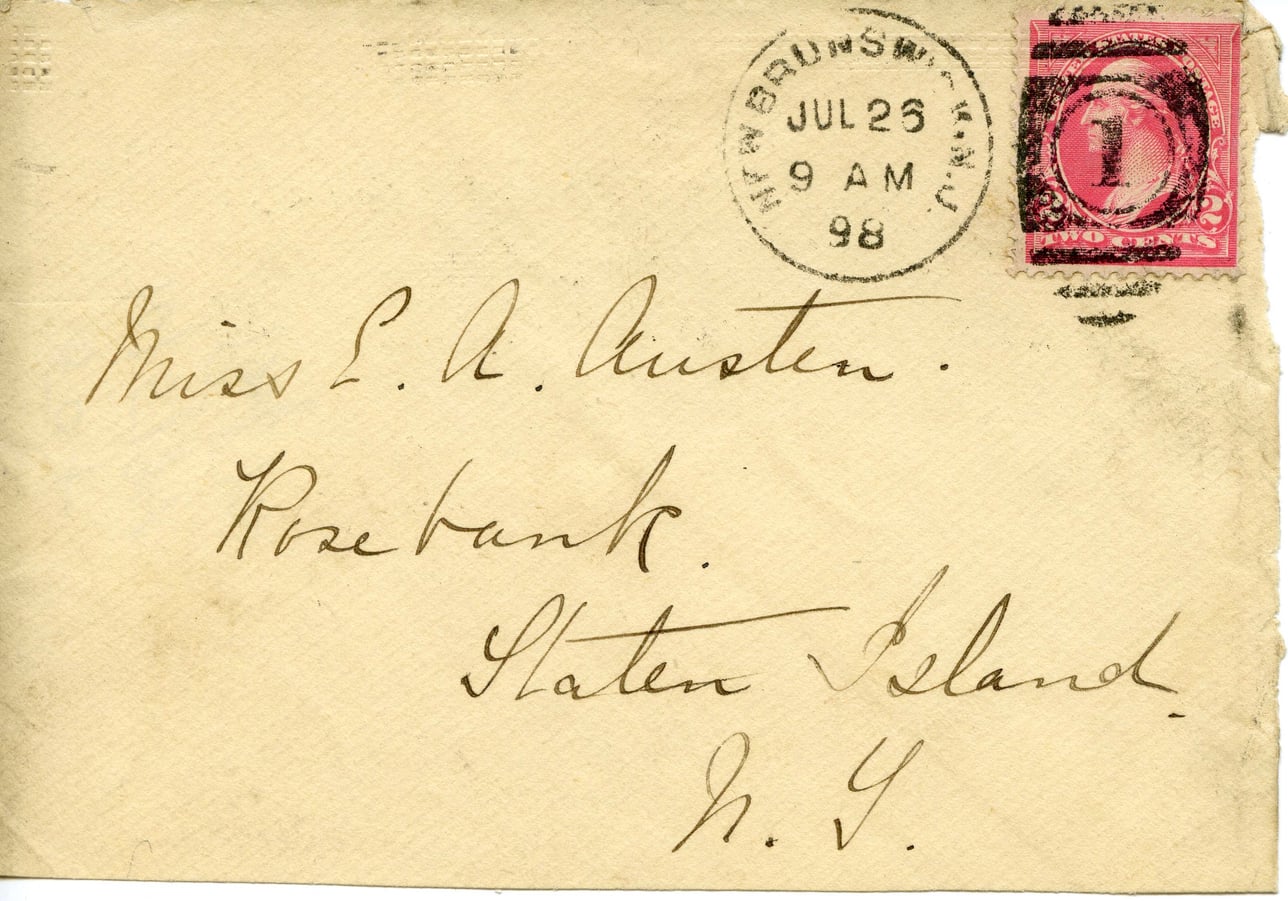 NEW BRUNSWICK, N.J.
JUL 26
9 AM
98
1
UNITED STATES POSTAGE
2 2
TWO CENTS
Miss E. A. Austen.
Rosebank.
Staten Island.
N. Y.